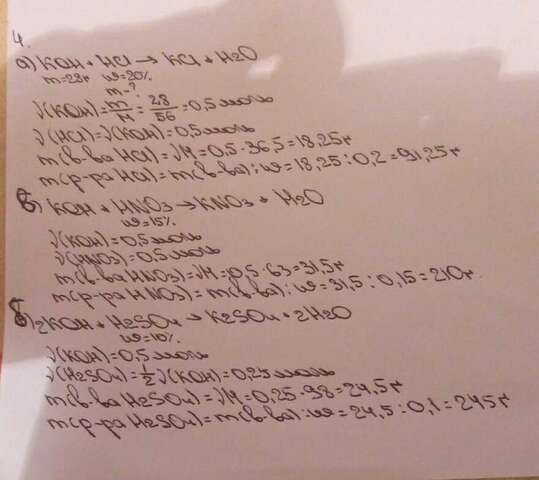 4.
а) KOH + HCl → KCl + H2O
m=28г w=20%
m-?
ν(KOH)=m/M=28/56=0,5моль
ν(HCl)=ν(KOH)=0,5моль
m(в-ва HCl)=νM=0,5·36,5=18,25г
m(р-ра HCl)=m(в-ва):w=18,25:0,2=91,25г
в) KOH + HNO3 → KNO3 + H2O
w=15%
ν(KOH)=0,5моль
ν(HNO3)=0,5моль
m(в-ва HNO3)=νM=0,5·63=31,5г
m(р-ра HNO3)=m(в-ва):w=31,5:0,15=210г.
б) 2KOH + H2SO4 → K2SO4 + 2H2O
w=10%
ν(KOH)=0,5моль
ν(H2SO4)=1/2ν(KOH)=0,25моль
m(в-ва H2SO4)=νM=0,25·98=24,5г
m(р-ра H2SO4)=m(в-ва):w=24,5:0,1=245г